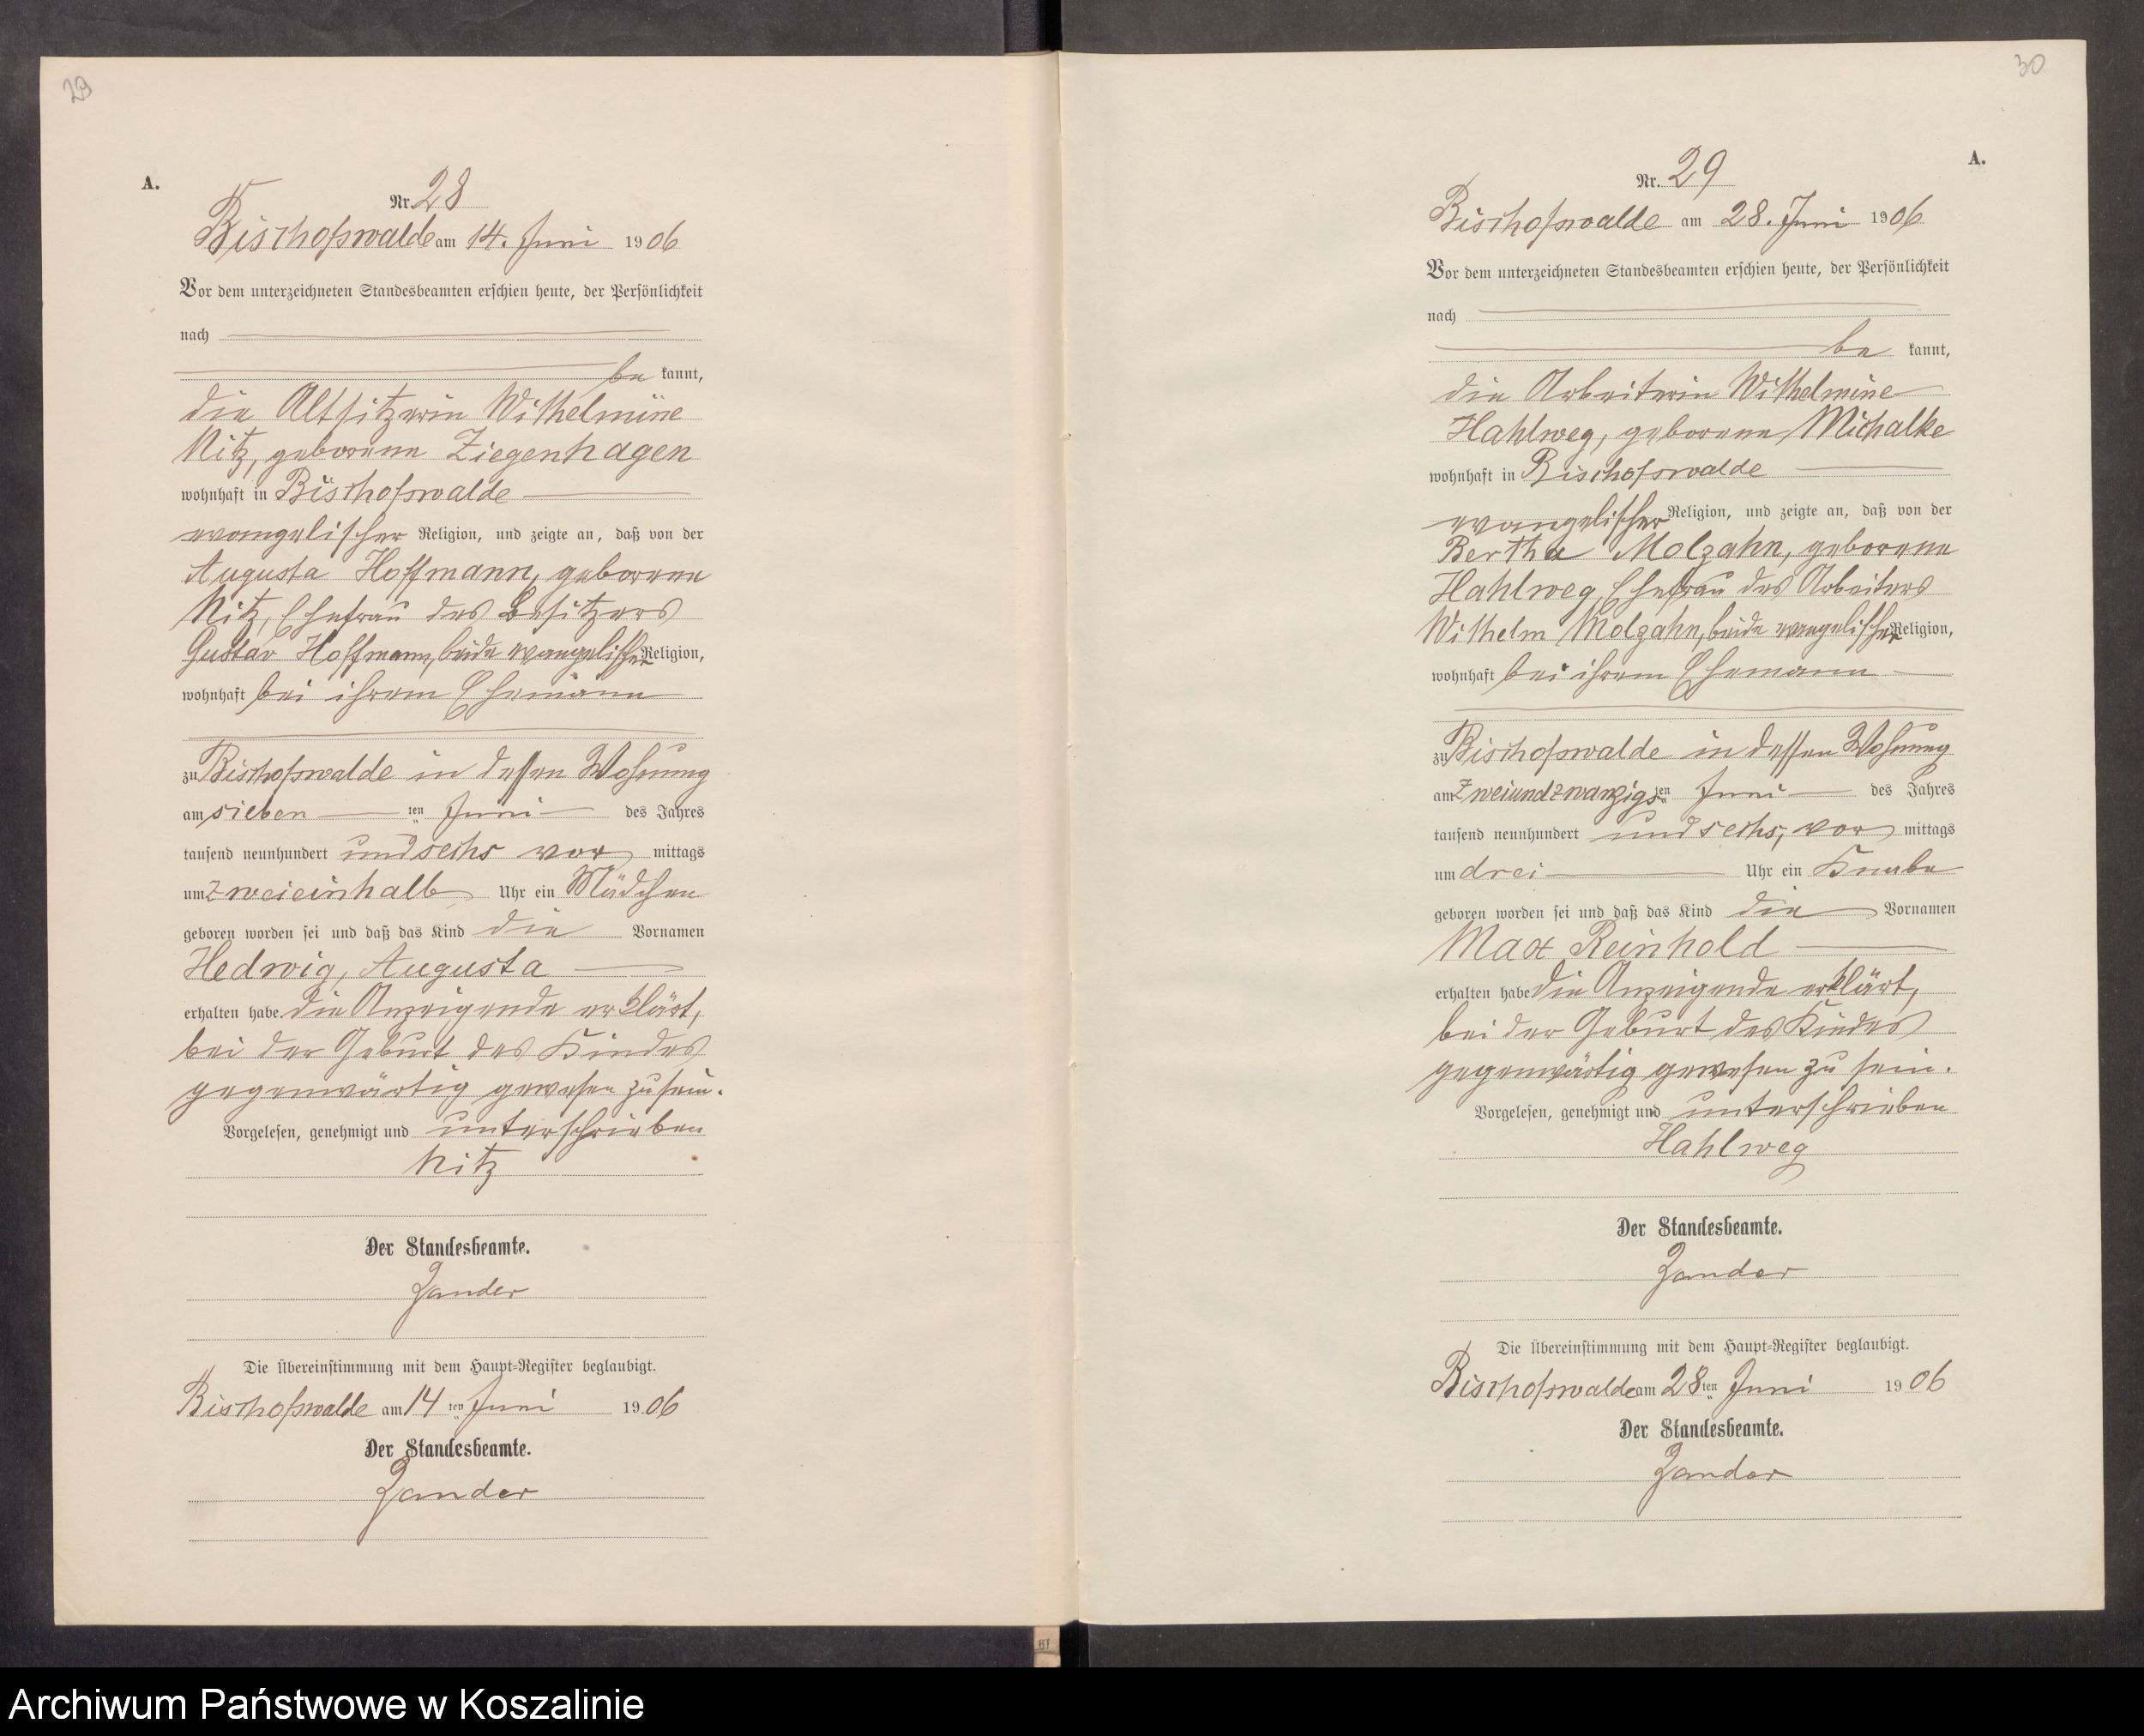 29
A.
Nr. 28
Bischofswalde am 14. Juni 1906
Vor dem unterzeichneten Standesbeamten erschien heute, der Persönlichkeit
nach
be kannt,
die Altsitzerin Wilhelmine
Nitz, geborene Ziegenhagen
wohnhaft in Bischofswalde
evangelischer Religion, und zeigte an, daß von der
Augusta Hoffmann, geborene
Nitz, Ehefrau des Besitzers
Gustav Hoffmann, beide evangelischer Religion,
wohnhaft bei ihrem Ehemann
zu Bischofswalde in dessen Wohnung
am sieben ten Juni des Jahres
tausend neunhundert und sechs vor mittags
um zweieinhalb Uhr ein Mädchen
geboren worden sei und daß das Kind die Vornamen
Hedwig, Augusta
erhalten habe. die Anzeigende erklärt,
bei der Geburt des Kindes
gegenwärtig gewesen zu sein.
Vorgelesen, genehmigt und unterschrieben
Nitz
Der Standesbeamte.
Zander
Die Übereinstimmung mit dem Haupt-Register beglaubigt.
Bischofswalde am 14 ten Juni 1906
Der Standesbeamte.
Zander
30
A.
Nr. 29
Bischofswalde am 28. Juni 1906
Vor dem unterzeichneten Standesbeamten erschien heute, der Persönlichkeit
nach
be kannt,
die Arbeiterin Wilhelmine
Hahlweg, geborene Michalke
wohnhaft in Bischofswalde
evangelischer Religion, und zeigte an, daß von der
Bertha Molzahn, geborene
Hahlweg, Ehefrau des Arbeiters
Wilhelm Molzahn, beide evangelischer Religion,
wohnhaft bei ihrem Ehemann
zu Bischofswalde in dessen Wohnung
am zweiundzwanzigs ten Juni des Jahres
tausend neunhundert und sechs, vor mittags
um drei Uhr ein Knabe
geboren worden sei und daß das Kind die Vornamen
Max Reinhold
erhalten habe die Anzeigende erklärt,
bei der Geburt des Kindes
gegenwärtig gewesen zu sein.
Vorgelesen, genehmigt und unterschrieben
Hahlweg
Der Standesbeamte.
Zander
Die Übereinstimmung mit dem Haupt-Register beglaubigt.
Bischofswalde am 28 ten Juni 1906
Der Standesbeamte.
Zander
Archiwum Państwowe w Koszalinie